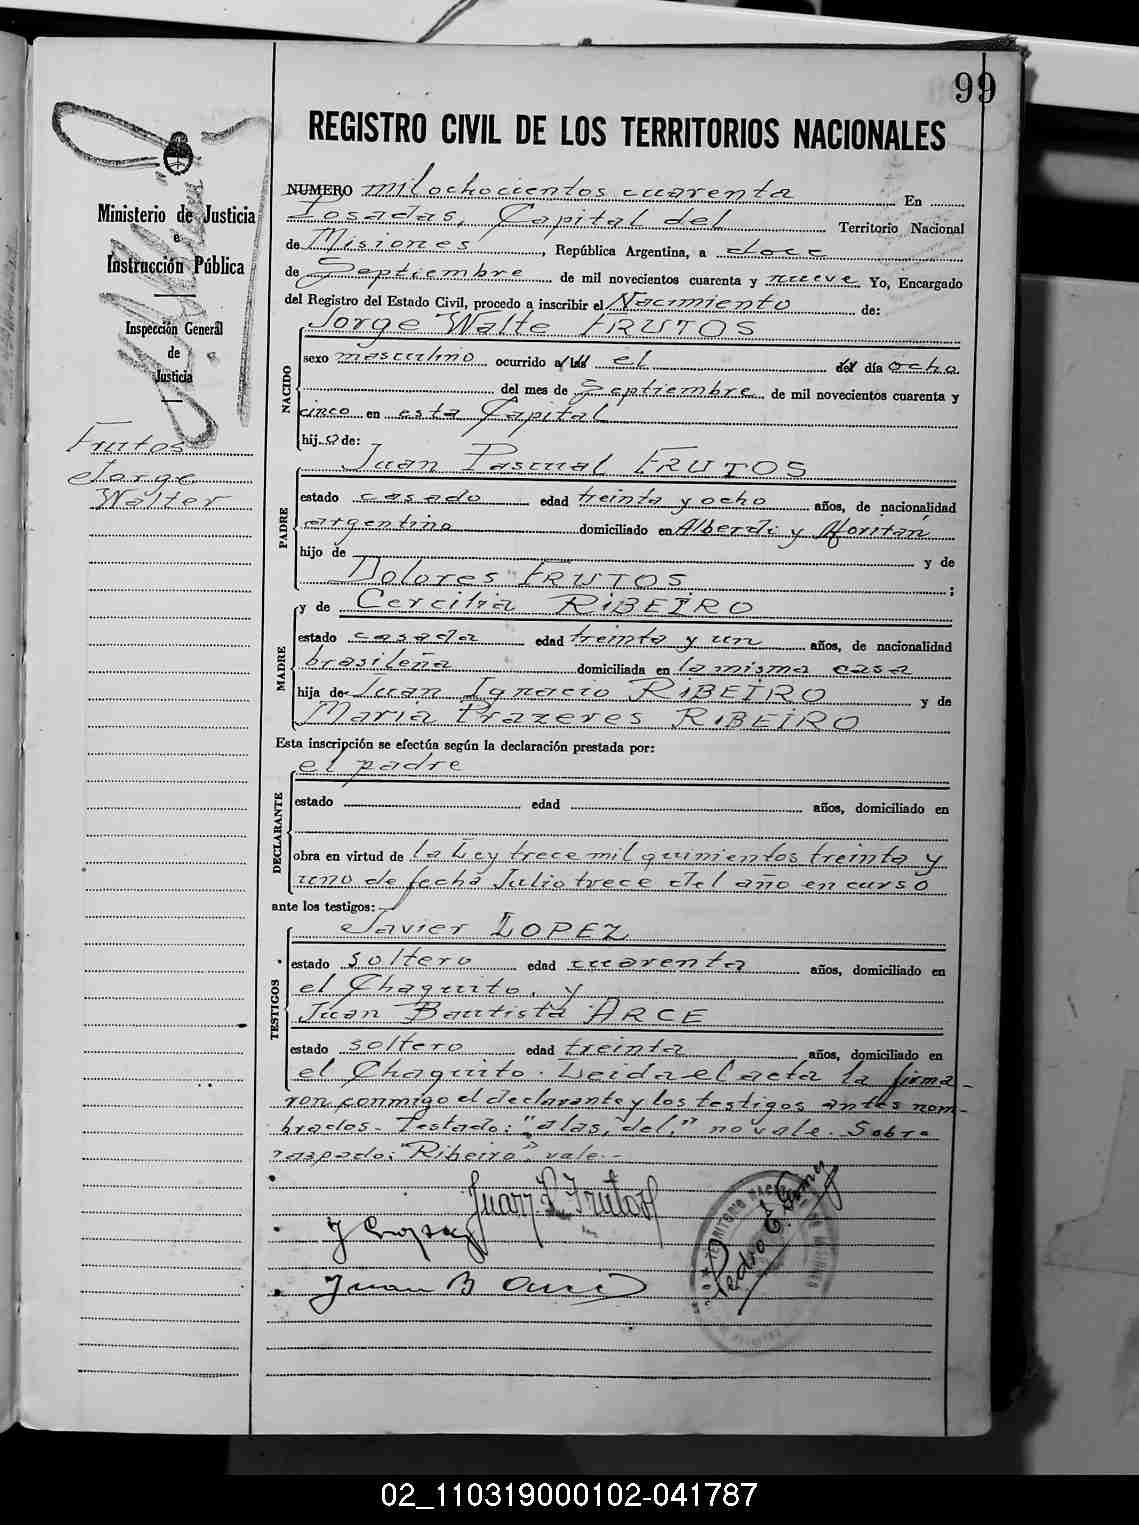 99
REGISTRO CIVIL DE LOS TERRITORIOS NACIONALES
Ministerio de Justicia
e
Instrucción Pública
Inspección General
de
Justicia
Frutos
Jorge
Walter
NUMERO milochocientos cuarenta En
Posadas, Capital del Territorio Nacional
de Misiones, República Argentina, a doce
de Septiembre de mil novecientos cuarenta y nueve Yo, Encargado
del Registro del Estado Civil, procedo a inscribir el Nacimiento de:
NACIDO
Jorge Walte FRUTOS
sexo masculino ocurrido a las el del día ocho
del mes de Septiembre de mil novecientos cuarenta y
cinco en esta Capital
hij o de:
PADRE
Juan Pascual FRUTOS
estado casado edad treinta y ocho años, de nacionalidad
argentina domiciliado en Alberdi y
hijo de y de
Dolores FRUTOS ;
MADRE
y de Cercilia RIBEIRO
estado casada edad treinta y un años, de nacionalidad
brasileña domiciliada en la misma casa
hija de Juan Ignacio RIBEIRO y de
Maria Prazeres RIBEIRO
Esta inscripción se efectúa según la declaración prestada por:
DECLARANTE
el padre
estado edad años, domiciliado en
obra en virtud de la Ley trece mil quinientos treinta y
uno de fecha Julio trece del año en curso
ante los testigos:
TESTIGOS
Javier LOPEZ
estado soltero edad cuarenta años, domiciliado en
el Chaquito, y
Juan Bautista ARCE
estado soltero edad treinta años, domiciliado en
el Chaquito. Leida el acta la firma-
ron conmigo el declarante y los testigos antes nom-
brados.- Testado: "a las, del," no vale. Sobre
raspado: "Ribeiro", vale.-
Juan P. Frutos
J Lopez
Juan B Arce
Pedro E.
02_110319000102-041787